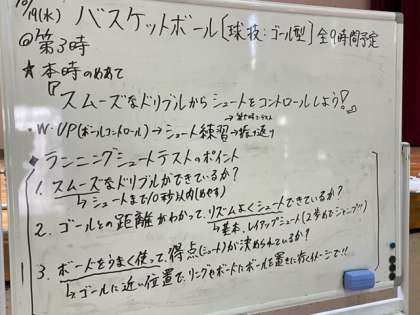 10/19(水) バスケットボール〔球技：ゴール型〕全9時間予定
@第3時
★本時のめあて
『スムーズなドリブルからシュートをコントロールしよう!』
・W-UP(ボールコントロール)→シュート練習→振り返り
◆ランニングシュートテストのポイント
1. スムーズなドリブルができているか?
↳シュートまで10秒以内(めやす)
2. ゴールとの距離がわかって、リズムよくシュートできているか?
↳基本、レイアップシュート(2歩めでジャンプ!!)
3. ボードをうまく使って、得点(シュート)が決められているか?
↳ゴールに近い位置で、リングやボードにボールを置きに行くイメージで!!